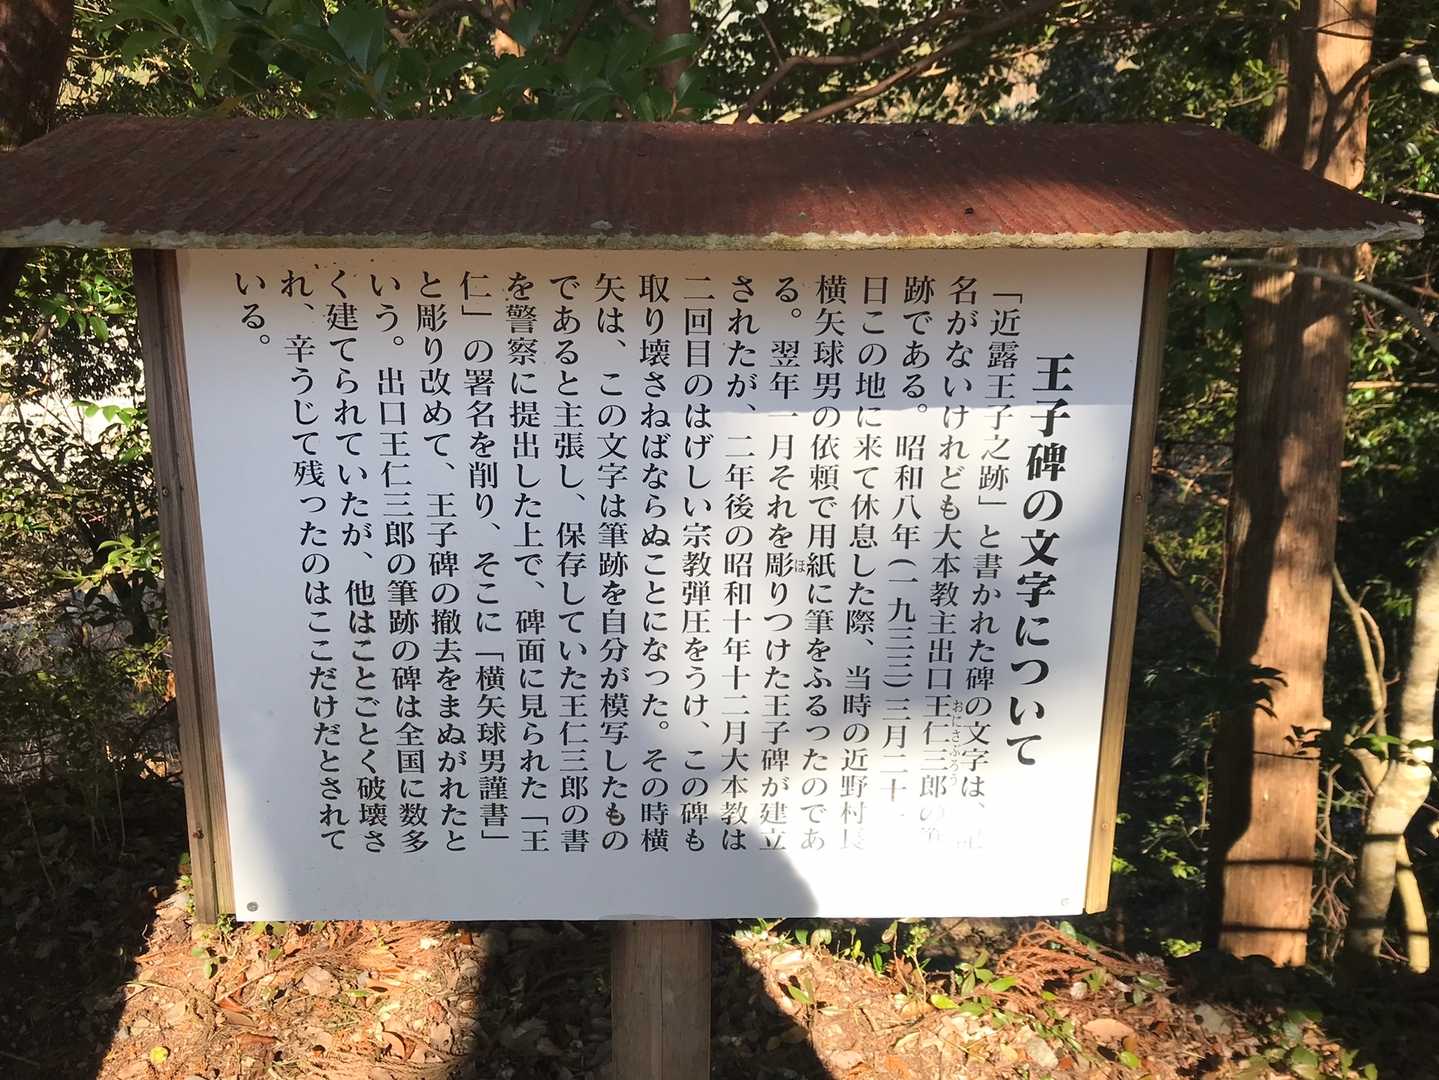 王子碑の文字について
「近露王子之跡」と書かれた碑の文字は、記
名がないけれども大本教主出口王仁三郎の筆
おにさぶろう
跡である。昭和八年(一九三三)三月二十
日この地に来て休息した際、当時の近野村長
横矢球男の依頼で用紙に筆をふるったのであ
る。翌年一月それを彫りつけた王子碑が建立
ほ
されたが、二年後の昭和十年十二月大本教は
二回目のはげしい宗教弾圧をうけ、この碑も
取り壊さねばならぬことになった。その時横
矢は、この文字は筆跡を自分が模写したもの
であると主張し、保存していた王仁三郎の書
を警察に提出した上で、碑面に見られた「王
仁」の署名を削り、そこに「横矢球男謹書」
と彫り改めて、王子碑の撤去をまぬがれたと
いう。出口王仁三郎の筆跡の碑は全国に数多
く建てられていたが、他はことごとく破壊さ
れ、辛うじて残ったのはここだけだとされて
いる。